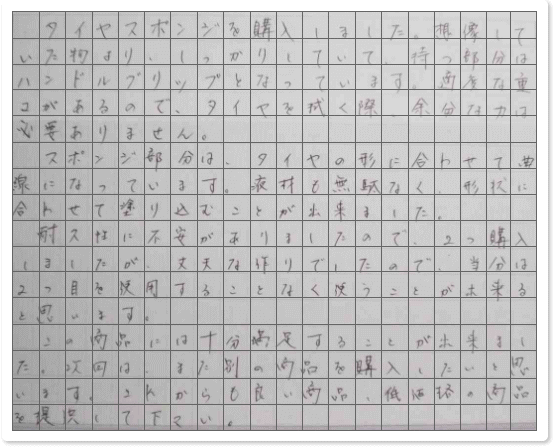 タイヤスポンジを購入しました。想像して
いた物より、しっかりしていて、持つ部分は
ハンドルグリップとなっています。適度な重
コがあるので、タイヤを拭く際、余分な力は
必要ありません。
スポンジ部分は、タイヤの形に合わせて曲
線になっています。液材も無駄なく、形状に
合わせて塗り込むことが出来ました。
耐久性に不安がありましたので、2つ購入
しましたが、丈夫な作りでしたので、当分は
2つ目を使用することなく使うことが出来る
と思います。
この商品には十分満足することが出来まし
た。次回は、また別の商品を購入したいと思
います。これからも良い商品、低価格の商品
を提供して下さい。